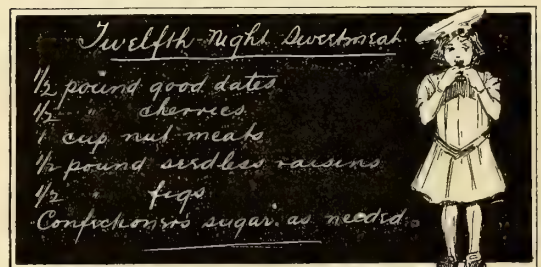 Twelfth-Night Sweetmeat
1/2 pound good dates
1/2 " cherries
1 cup nut meats
1/2 pound seedless raisins
1/2 " figs
Confectioners sugar as needed.